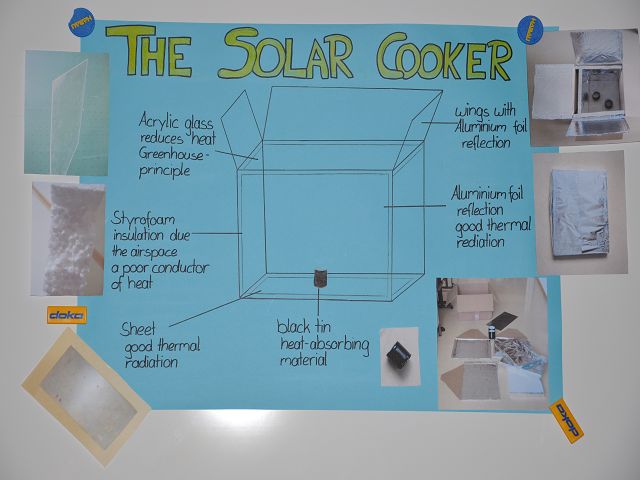 THE SOLAR COOKER
Acrylic glass
reduces heat
Greenhouse-
principle
wings with
Aluminium foil
reflection
Styrofoam
insulation due
the airspace
a poor conductor
of heat
Aluminium foil
reflection
good thermal
rediation
Sheet
good thermal
radiation
black tin
heat-absorbing
material
doka
doka